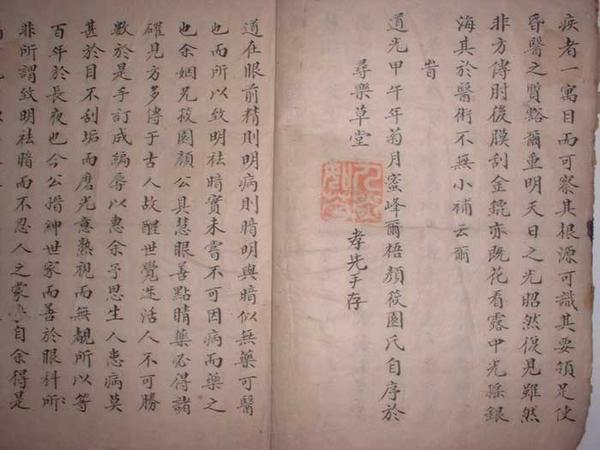 疾者一寓目而可察其根源可識其要領足使
昏瞽之質豁爾重明天日之光昭然復見雖然
非方傳肘後膜刮金鎞亦既花看露中光搖銀
海其於醫術不無小補云爾
旹
道光甲午年菊月蜜峰爾梧顏筱園氏自序於
尋樂草堂
孝先手存
道在眼前精則明病則暗明與暗似無藥可醫
也而所以致明祛暗實未嘗不可因病而藥之
也余姻兄筱園顏公具慧眼善點睛藥必得諸
確見方多傳于古人故醒世覺迷活人不可勝
數於是手訂成編辱以惠余予思生人患病莫
甚於目不刮垢而磨光意熱視而無覩所以等
百年於長夜也今公揩神世家而善於眼科所
非所謂致明祛暗而不忍人之蒙 自余得是